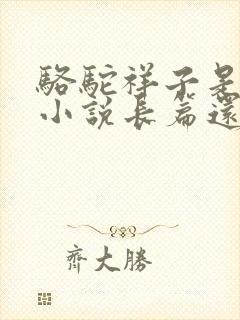 駱駝祥子是
小說長篇還
齊大勝